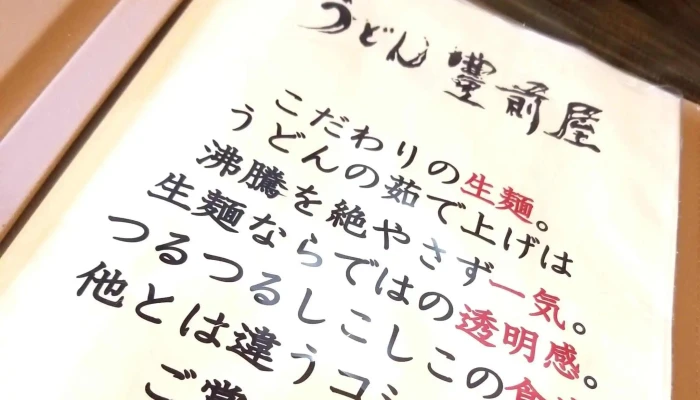 うどん 豊前屋
こだわりの生麺。
うどんの茹で上げは
沸騰を絶やさず一気。
生麺ならではの透明感。
つるつるしこしこの食
他とは違うコシ
ご賞